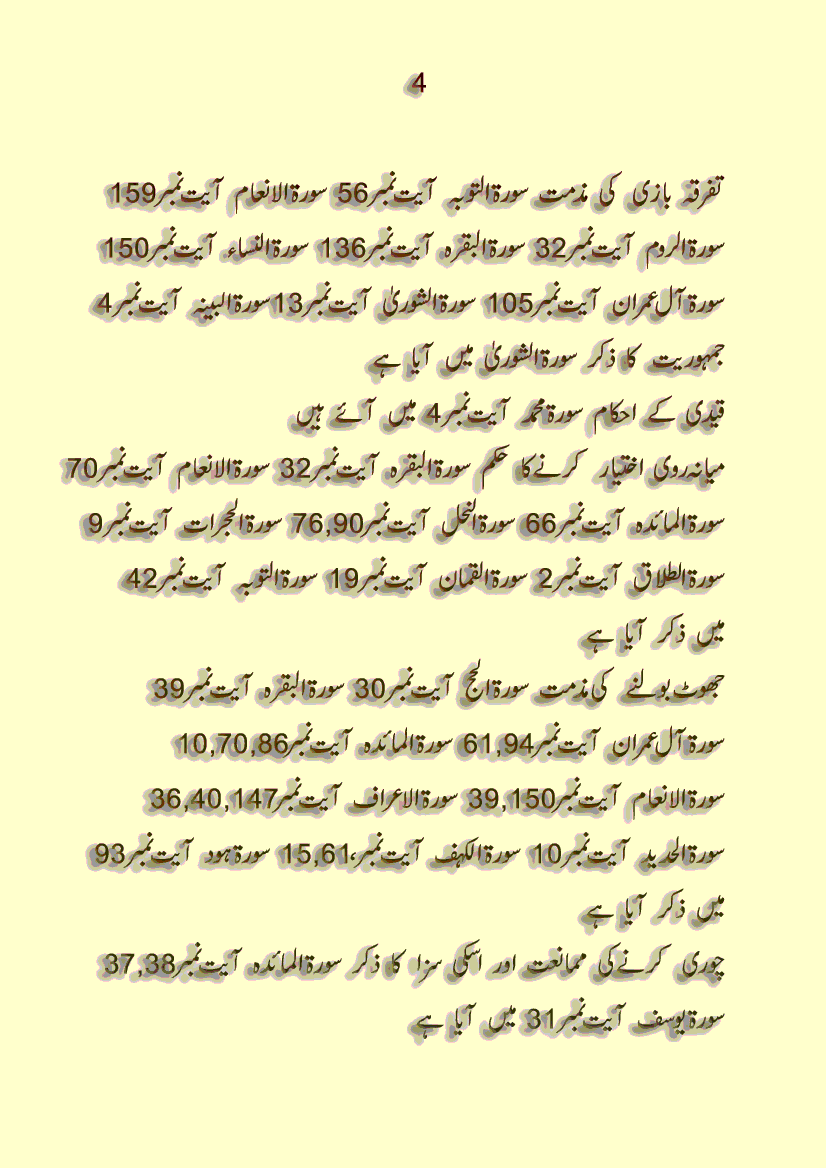 4
تفرقہ بازی کی مذمت سورۃالتوبہ آیت نمبر56 سورۃالانعام آیت نمبر159
سورۃالروم آیت نمبر32 سورۃالبقرہ آیت نمبر136 سورۃالنساء آیت نمبر150
سورۃآل عمران آیت نمبر105 سورۃالشوریٰ آیت نمبر13سورۃالبینہ آیت نمبر4
جمہوریت کا ذکر سورۃالشوریٰ میں آیا ہے
قیدی کے احکام سورۃمحمد آیت نمبر4 میں آئے ہیں
میانہ روی اختیار کرنے کا حکم سورۃالبقرہ آیت نمبر32 سورۃالانعام آیت نمبر70
سورۃالمائدہ آیت نمبر66 سورۃالنحل آیت نمبر76,90 سورۃالحجرات آیت نمبر9
سورۃالطلاق آیت نمبر2 سورۃالقمان آیت نمبر19 سورۃالتوبہ آیت نمبر42
میں ذکر آیا ہے
جھوٹ بولنے کی مذمت سورۃالحج آیت نمبر30 سورۃالبقرہ آیت نمبر39
سورۃآل عمران آیت نمبر61,94 سورۃالمائدہ آیت نمبر10,70,86
سورۃالانعام آیت نمبر39,150 سورۃالاعراف آیت نمبر36,40,147
سورۃالحدید آیت نمبر10 سورۃالکہف آیت نمبر،15,61 سورۃہود آیت نمبر93
میں ذکر آیا ہے
چوری کرنے کی ممانعت اور اسکی سزا کا ذکر سورۃالمائدہ آیت نمبر37,38
سورۃیوسف آیت نمبر31 میں آیا ہے